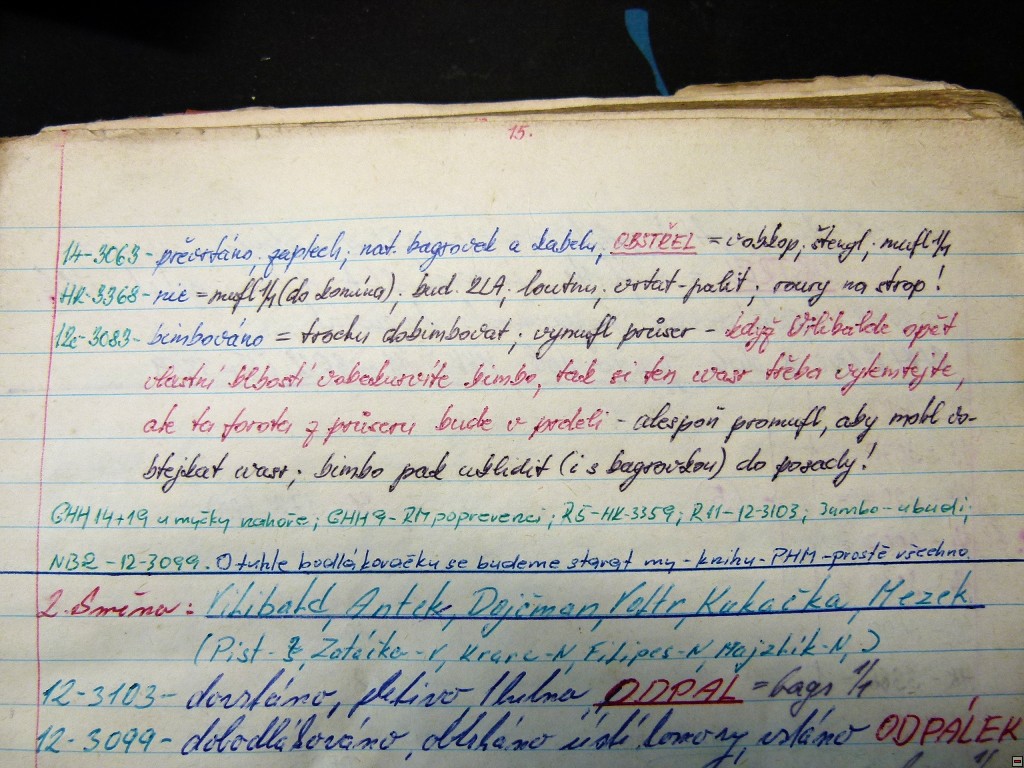 15.
14-3063- převrtáno, zaplech, nat. bagrovek a kabelu, OBSTŘEL = vobkop, štengl, mufl 1/4
HK-3368- nic = mufl 1/4 (do komína), bud. 2LA, loutnu, vrtat-palit, roury na strop!
12c-3083- bimbováno = trochu dobimbovat; vymufl průser - když Vilibalde opět
vlastní blbostí vobekurvíte bimbo, tak si ten wasr třeba vylemtejte,
ale ta forota z průseru bude v prdeli - alespoň promufl, aby mohl vo-
btejkat wasr; bimbo pak uklidit (i s bagrovkou) do posady!
GHH 14+19 u myčky nahoře; GHH 9-RM po prevenci; R5-HK-3359; R11-12-3103; Jumbo-u budi;
NB2-12-3099. O tuhle bodlákovačku se budeme starat my - knihy - PHM - prostě všechno.
2. Směna: Vilibald, Antek, Dojčman, Foltr, Kukačka, Mezek
(Pist- Zatáčka-V, Kranc-N, Filipes-N, Majzlík-N,)
12-3103- dovrtáno, ODPAL = bagr 1/4
12-3099- dobodlákováno, ústí komory, vrtáno ODPÁLEK